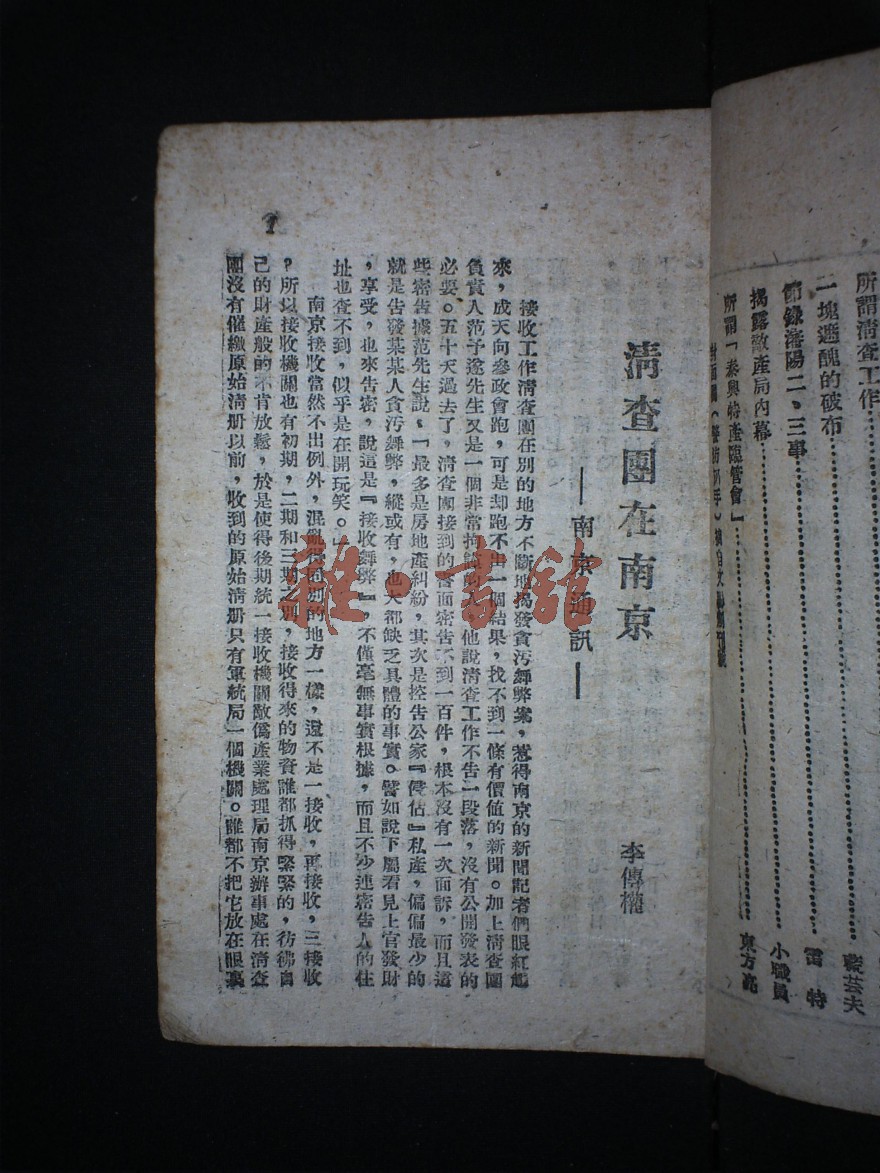 所謂清查工作
藜芸夫
一塊遮醜的破布
雷特
節錄瀋陽二、三事
小職員
揭露敵產局內幕
東方亮
所謂「泰興特產臨管會」
清查團在南京
李傳權
——南京通訊——
接收工作清查團在別的地方不斷地揭發貪污舞弊案，惹得南京的新聞記者們眼紅起
來，成天向參政會跑，可是却跑不出一個結果，找不到一條有價值的新聞。加上清查團
負責人范予遂先生又是一個非常持，他說清查工作不告一段落，沒有公開發表的
必要。五十天過去了，清查團接到的書面密告不到一百件，根本沒有一次面訴，而且這
些密告據范先生說，「最多是房地產糾紛，其次是控告公家『侵佔』私產，偏偏最少的
就是告發某某人貪污舞弊，縱或有，也大都缺乏具體的事實。譬如說下屬看見上官發財
，享受，也來告密，說這是『接收舞弊』，不僅毫無事實根據，而且不少連密告人的住
址也查不到，似乎是在開玩笑。」
南京接收當然不出例外，混亂得同別的地方一樣，還不是一接收，再接收，三接收
？所以接收機關也有初期，二期和三期之別，接收得來的物資誰都抓得緊緊的，彷彿自
己的財產般的不肯放鬆，於是使得後期統一接收機關敵偽產業處理局南京辦事處在清查
團沒有催繳原始清册以前，收到的原始清册只有軍統局一個機關。誰都不把它放在眼裏
1
雜·書館